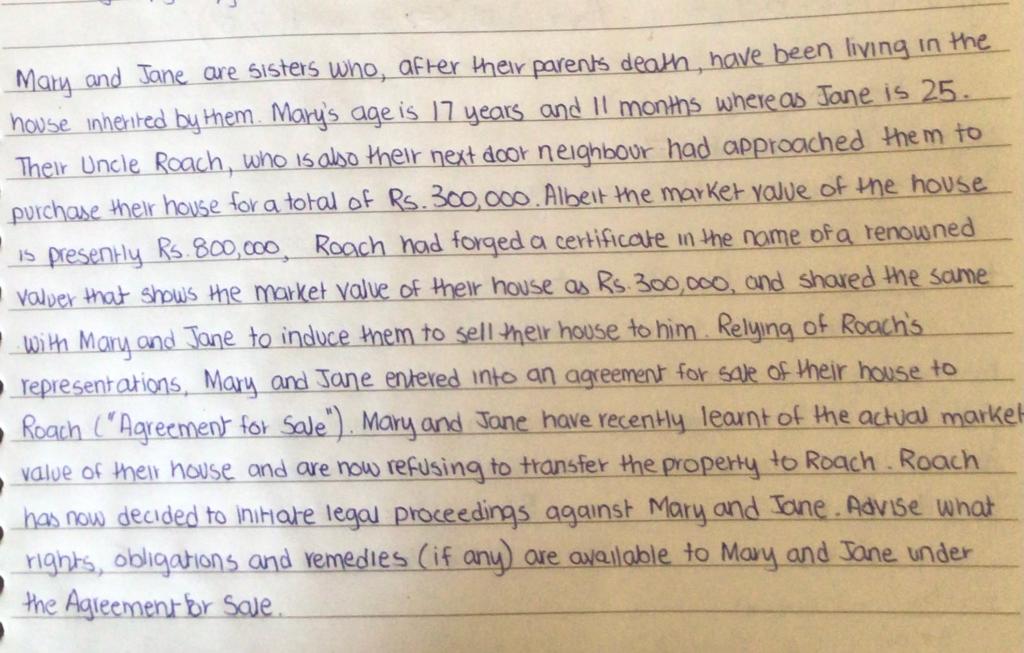 Mary and Jane are sisters who, after their parents death, have been living in the
house inherited by them. Mary's age is 17 years and 11 months whereas Jane is 25.
Their Uncle Roach, who is also their next door neighbour had approached them to
purchase their house for a total of Rs. 300,000. Albeit the market value of the house
is presently Rs. 800,000, Roach had forged a certificate in the name of a renowned
valuer that shows the market value of their house as Rs. 300,000, and shared the same
with Mary and Jane to induce them to sell their house to him. Relying of Roach's
representations, Mary and Jane entered into an agreement for sale of their house to
Roach ("Agreement for Sale"). Mary and Jane have recently learnt of the actual market
value of their house and are now refusing to transfer the property to Roach. Roach
has now decided to initiate legal proceedings against Mary and Jane. Advise what
rights, obligations and remedies (if any) are available to Mary and Jane under
the Agreement for Sale.